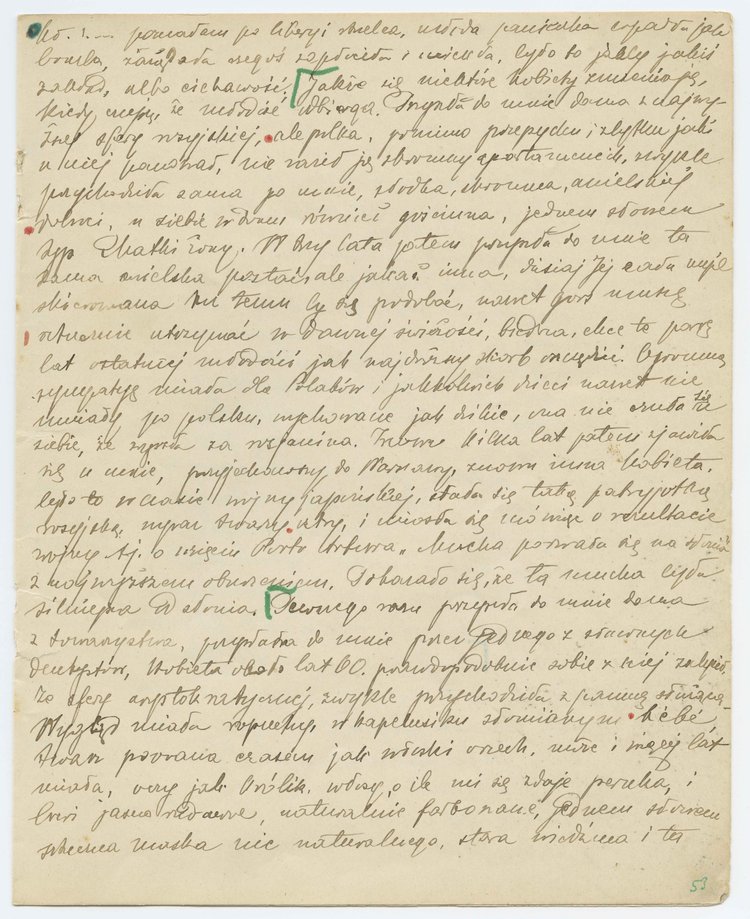 posłałem po liberyi strzelca, młoda panienka wpadła jak
bomba, zażądała czegoś zapłaciła i uciekła, były to jakiś
zakład, albo ciekawość. Jakże się niektóre kobiety zmieniają,
kiedy czują, że młodość ubiega. Przyszła do mnie dama z najwyż-
szej sfery rosyjskiej, ale polka, pomimo przepychu i zbytku jaki
u niej panował, nie raził ją skromny apartamencik, zwykle
przychodziła sama po mnie, słodka, skromna, anielskiej
dobroci, u siebie w domu również gościnna, jednem słowem
typ Matki żony. W trzy lata potem przyszła do mnie ta
sama anielska postać, ale jakaś inna, dzisiaj Jej cada myśl
skierowana ku temu by się podobać, nawet gors muszę
sztucznie utrzymać w dawnej świeżości, biedna, chce te parę
lat ostatniej młodości jak najdroższy skarb oszczędzić. Ogromną
sympatyę miała dla Polaków i jakkolwiek dzieci nawet nie
umiały po polsku, wychowane jak dzikie, ona nie czuła się u
siebie, że wyszła za rosjanina. Znowu kilka lat potem zjawiła
się u mnie, przyjechawszy do Warszawy, znowu inna kobieta,
było to w czasie wojny japońskiej, stała się taką patryotką
rosyjską, wyraz twarzy zły, i uniosła się mówiąc o rezultacie
wojny tj. o wzięciu Porto Artura „Mucha porwała się na słonia
z najwyższem oburzeniem. Pokazało się, że ta mucha była
silniejsza od słonia. Pewnego razu przyszła do mnie dama
z towarzystwa, przysłana do mnie przez jednego z sławnych
dentystów, kobieta około lat 60. prawdopodobnie sobie z niej zakpił.
Ze sfery arystokratycznej, zwykle przychodziła z panną służącą.
Wygląd miała ropuchy, w kapelusiku słomianym bébé,
twarz poorana czasem jak włoski orzech, może i więcej lat
miała, oczy jak królik, włosy, o ile mi się zdaje peruka, i
brwi jasno rudawe, naturalnie farbowane, jednem słowem
sztuczna maska nic naturalnego, stara wiedźma i ta
53